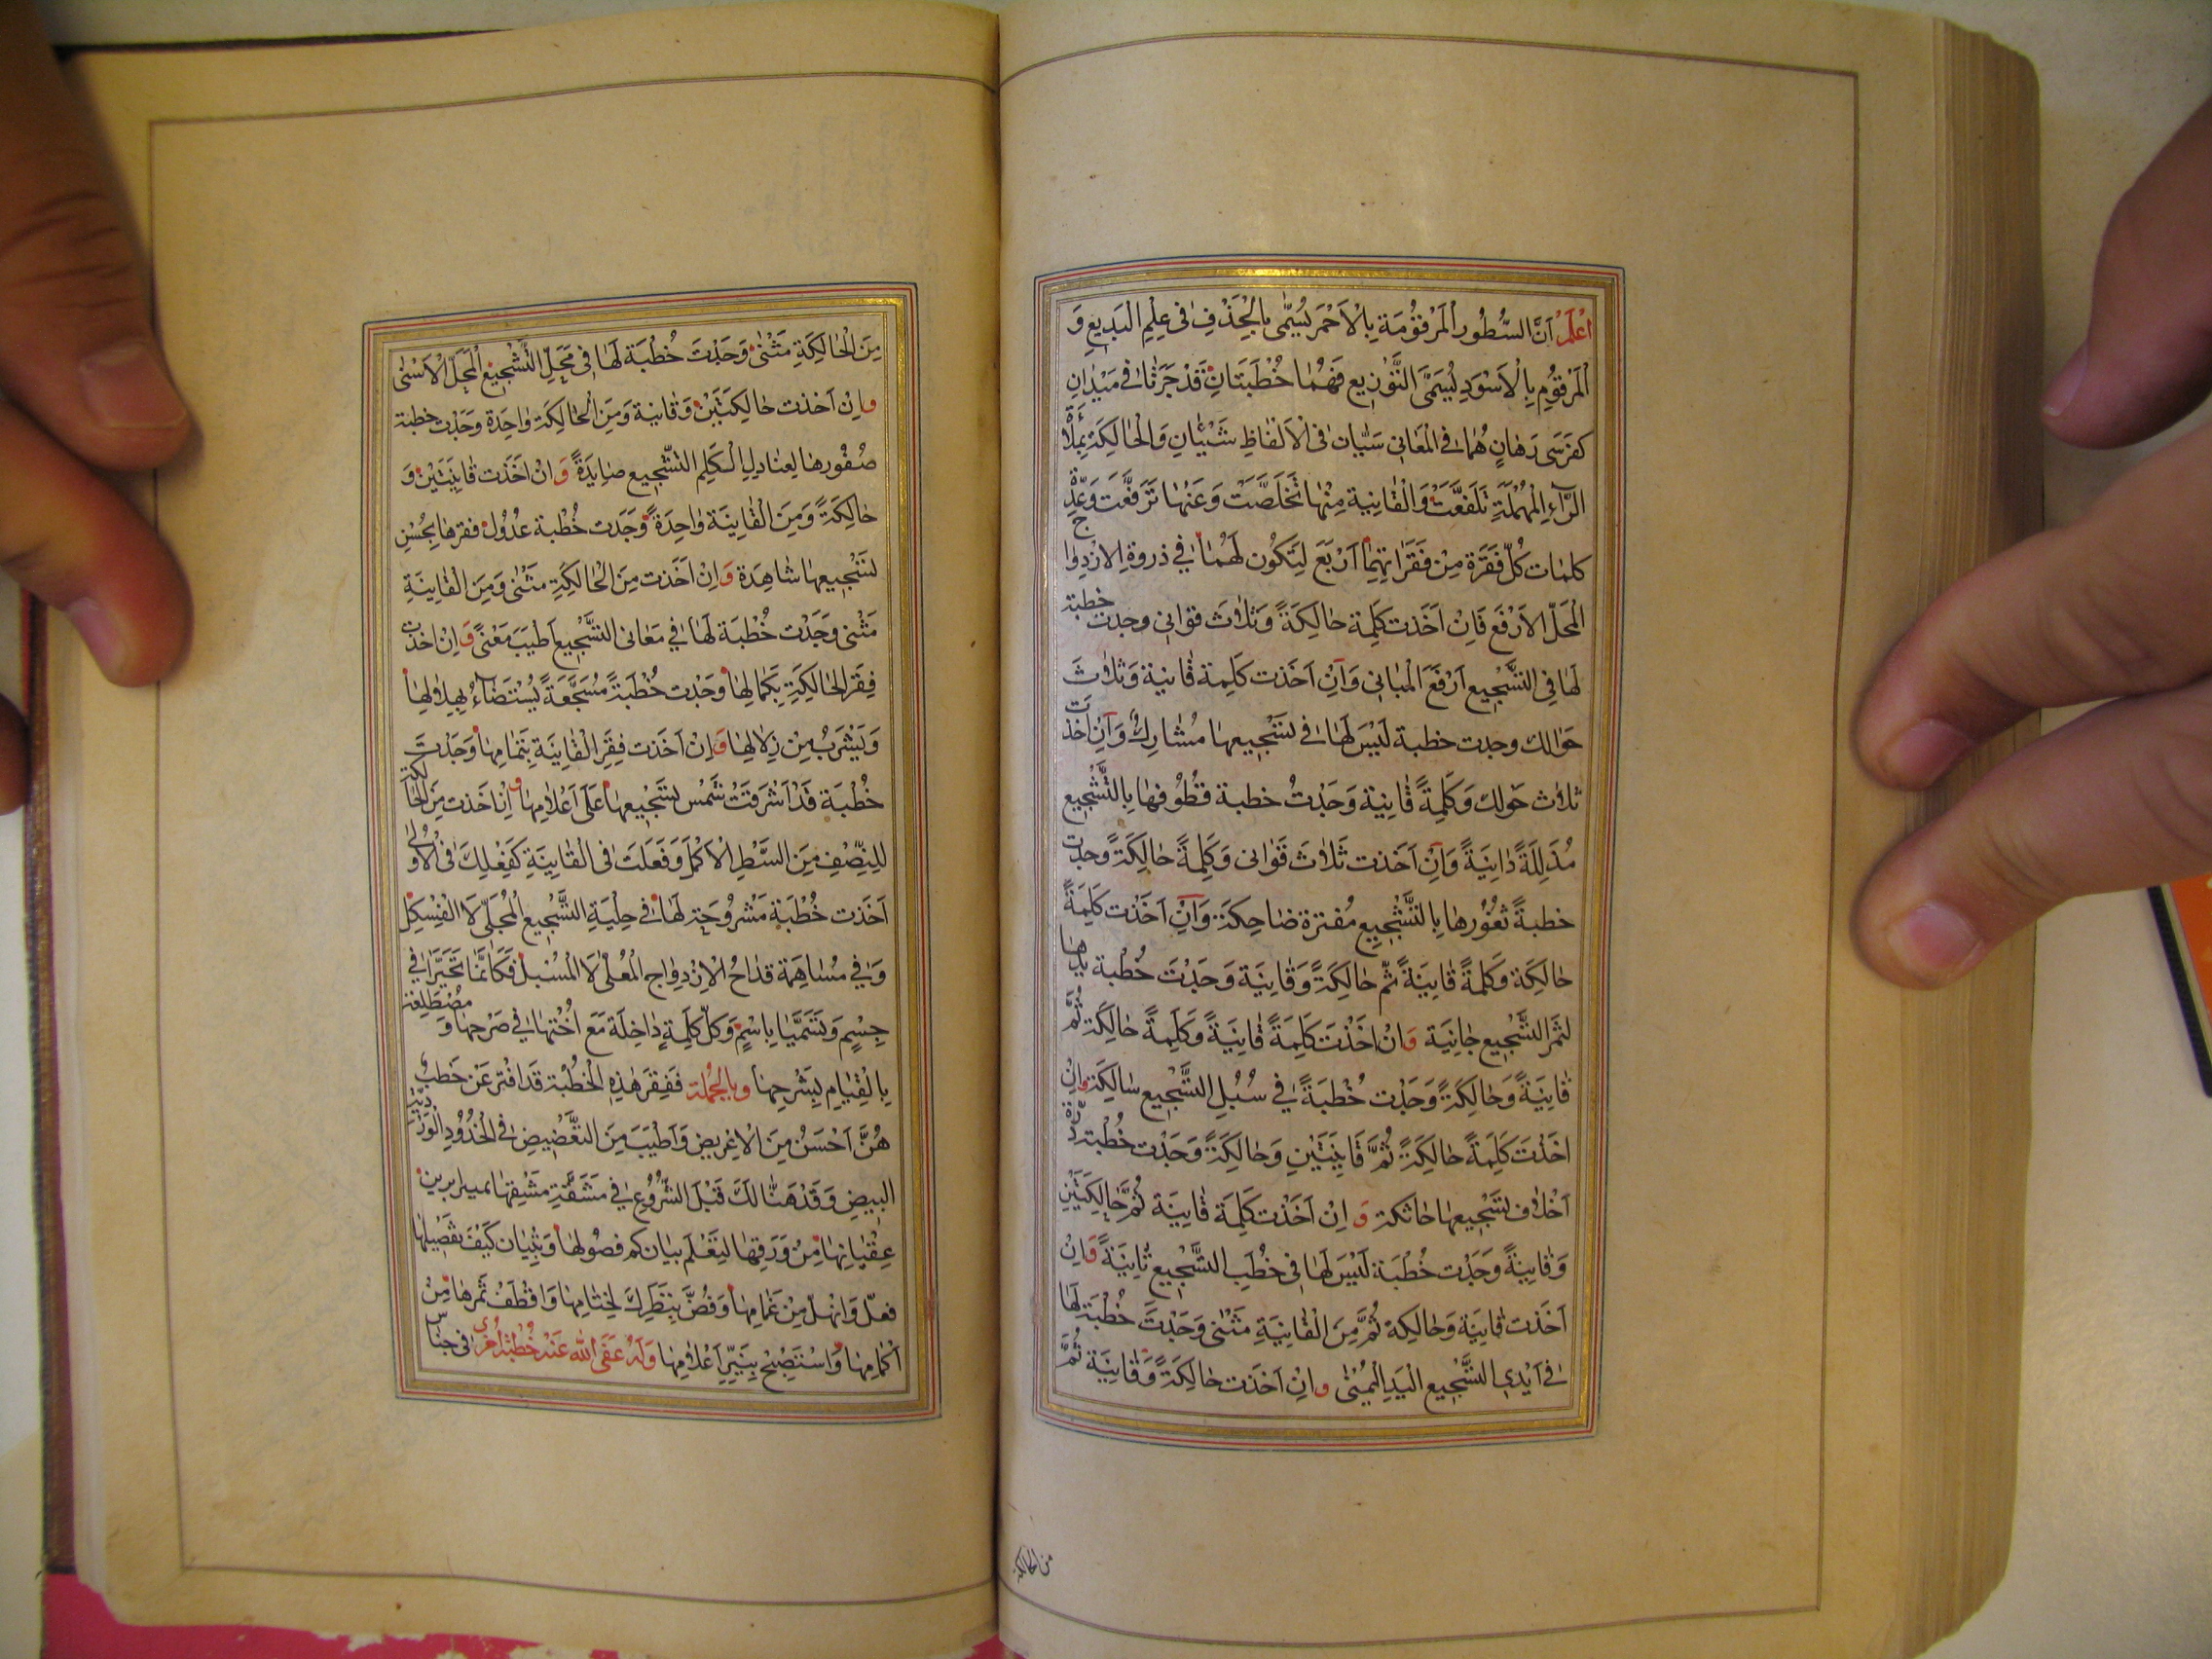 اعْلَمْ اَنَّ السُّطُورِ الْمَرْقوُمَةِ بِالْاَحْمَرِ يُسَمّٰى بِالْحَذْفِ فى عِلْمِ الْبَدِيعِ وَ
الْمَرْقوُمِ بِالْاَسْوَدِ يُسَمَّى التَّوْزِيع فَهُمٰا خُطْبَتَانِ قَدْ جَرَتٰا فى مَيْدٰانِ
كفَرَسَى رَهٰانٍ هُمٰا فى الْمَعٰانى سَيّٰانِ فى الْاَلْفٰاظِ شَتّٰانِ وَالْحٰالِكَةِ بِمِلٰأَةِ
الرّٰآءِ الْمُهْمَلَةِ تَلَفَّعَتْ وَالْقٰانِيَةِ مِنْهٰا تَخَلَّصَتْ وَعَنْهٰا تَرَفَّعَتْ وَعِدَّةِ
كلمٰات كُلّ فَقَرَة مِنْ فَقَرَاتِهِمٰا اَرْبَعَ لِتَكُون لَهُمٰا فِي ذروةِ الازْدِوٰاج
الْمَحَلّ الاَرْفَع فَاِنْ اَخَذت كَلِمة حٰالِكَةً وَثلٰاثَ قوٰانى وجدت خطبة
لَهٰا فِى التَّسْجِيع اَرْفَعَ الْمبٰانى وَاَنِ اَخَذت كَلِمة قٰانية وَثلٰاثَ
حَوٰالك وجدت خطبة لَيْسَ لَهٰا فى تَسْجِيعِهٰا مُشٰارِكٌ وَاَنِ اَخذت
ثلٰاث حَوٰلك وَكَلِمَةً قٰانِيَة وَجَدْتُ خطبة قُطُوفهٰا بِالتَّسْجِيع
مُذَلَّلَةً دٰانِيَةً وَاَنِ اَخَذت ثَلٰاثَ قَوٰانى وَكَلِمةً حٰالِكَةً وجدت
خطبةً ثغُوُرهٰا بِالتَّسْجِيعِ مُفترة ضٰاحِكَة وَاَنِ اَخَذت كَلِمَةً
حٰالِكَة وَكَلمةً قٰانِيَةً ثمّ حٰالِكَةً وَقٰانِيَة وَجَدْتَ خُطْبة يدُهٰا
لثمَرِ التَّسْجِيع جٰانِيَة وَانْ اَخَذْتَ كَلِمَةً قٰانِيَةً وَكَلِمةً حٰالِكَة ثُمَّ
قٰانِيَةً وَحٰالِكَةً وَجَدْت خُطْبَةً فِي سُبُلِ التَّسْجِيع سٰالِكَة وانْ
اخَذْتَ كَلِمَةً حٰالِكَةً ثُمَّ قَانِيَتَيْنِ وَحٰالِكَةً وَجَدْت خُطْبَة دٰرّة
اَخْلٰاف تَسْجِيعِهٰا حٰاتكة وَ اِنْ اَخَذْت كَلِمَة قٰانِيَة ثُمَّ حٰالِكَتَيْنِ
وَقٰانِيَةً وَجَدْت خُطْبَة لَيْسَ لَهٰا فى خُطَبِ التَّسْجِيع ثٰانِيَةً وَاِنْ
اَخَذت قٰانِيَة وَحٰالِكة ثُمَّ مِنَ الْقٰانِيَةِ مَثْنٰى وَجَدْتَ خُطْبَة لَهٰا
فى اَيْدى التَّسْجِيع الْيَدِ الْيُمْنٰى وَ اِنْ اَخَذت حٰالِكَةً وَقٰانِيَة ثُمَّ
من الحالكة
مِنَ الْحٰالِكَةِ مَثْنٰى وَجَدْتَ خُطْبَة لَهٰا فى مَحَلّ التَّسْجِيعِ الْمَحَلّ الْاَسْنٰى
وَاِنْ اَخذت حٰالِكَتَيْن وَقٰانِية وَمِنَ الْحٰالِكَة وٰاحِدَة وَجَدْت خطبة
صُقُورهٰا لِعنٰادِلِ الْكَلِم التَّسْجِيع صٰايِدَةً وَ انْ اَخَذت قٰانِيَتَيْن وَ
حٰالِكَةً وَمِنَ الْقٰانِيَة وٰاحِدَةً وَجَدت خُطْبة عدُوُل فقرهٰا بِحُسْنِ
تسَجْيِعِهٰا شٰاهِدَة وَاِنْ اَخَذت مِنَ الْحٰالِكَةِ مَثْنٰى وَمِنَ الْقٰانِيَةِ
مَثْنٰى وَجَدْت خُطْبَة لَهٰا فِي مَعٰانى التَّسْجِيع اَطْيَبَ مَعْنًى وَاِنْ اخذت
فِقَرَ الحٰالِكَةِ بِكَمٰالِهٰا وَجَدْت خُطْبَةً مُسَجَّعَةً يُسْتَضٰآءُ بِهِلٰالِهٰا
وَيَشْرَبُ مِنْ زِلٰالِهٰا وَاِنْ اَخَذت فِقَرِ الْقٰانِيَةِ بِتَمٰامِهٰا وَجَدْتَ
خُطْبَة قَدْ اَشْرَقَتْ شَمْس تسَجْيِعِهٰا عَلَى اَعْلٰامِهٰا وَ اِنْ اخذت مِنَ الْحٰالِكَة
لِلنِّصْفِ مِنَ السَّطْرِ الْاَكْمَلِ وَفَعَلْتَ فى الْقٰانِيَةِ كَفِعْلِكَ فى الْاُوْلٰى
اَخَذت خُطْبَة مَشْروُحَة لَهٰا فى حِلْيَةِ التَّسْجِيع الْمُجَلّى لَا الْفِسْكِل
وَفِي مُسٰاهِمَة قدٰاحُ الْاِزْدِوٰاج الْمُعَلّٰى لَا الْمُسْبل فَكَاَنَّمٰا تَحَيَّرا فِي
جِسْمٍ وَتَسَمَّيٰا بِاسْمٍ وَكلّ كَلِمَةٍ دٰاخِلَة مَعَ اُخْتهٰا فِي صَرْحِهٰا وَ مُضْطَلِعة
بِالْقِيٰامِ بِشَرْحِهٰا وَبِالْجُمْلَة فَفِقرَ هٰذِهِ الْخُطْبَة قَدَ افْترّ عَن خُطَبٍ
هُنَّ اَحْسَنُ مِنَ الْاِغْرِيضِ وَاَطْيَبَ مِنَ التَّغْضِيضِ فى الْخُدُودِ الْوَرْدِيّةِ
البِيضِ وَقَدْ هَنٰا لَكَ قَبْلَ الشُّروُعِ فِي مَشَقَّةِ مَشْيِقهٰا
عِقْيٰانِهٰا مِنْ وَرَقِهٰا لِتَعْلَم بيٰان كم فصُولهٰا وَتِبْيٰان كَيْفَ تَفْصِيلهٰا
فعلّ وَانْهلْ مِنْ غَمٰامِهٰا وَفُضَّ بِنَظَرِكَ لِخِتٰامِهٰا وَاقْطُفْ ثَمَرهٰا مِنْ
اَكْمٰامِهٰا وَاسْتَصْبِحْ بِنَيِّرِ اَعْلٰامِهٰا وَلَهُ عَفَى الله عَنْهُ خُطْبَة اُخْرٰى فى جنٰاس